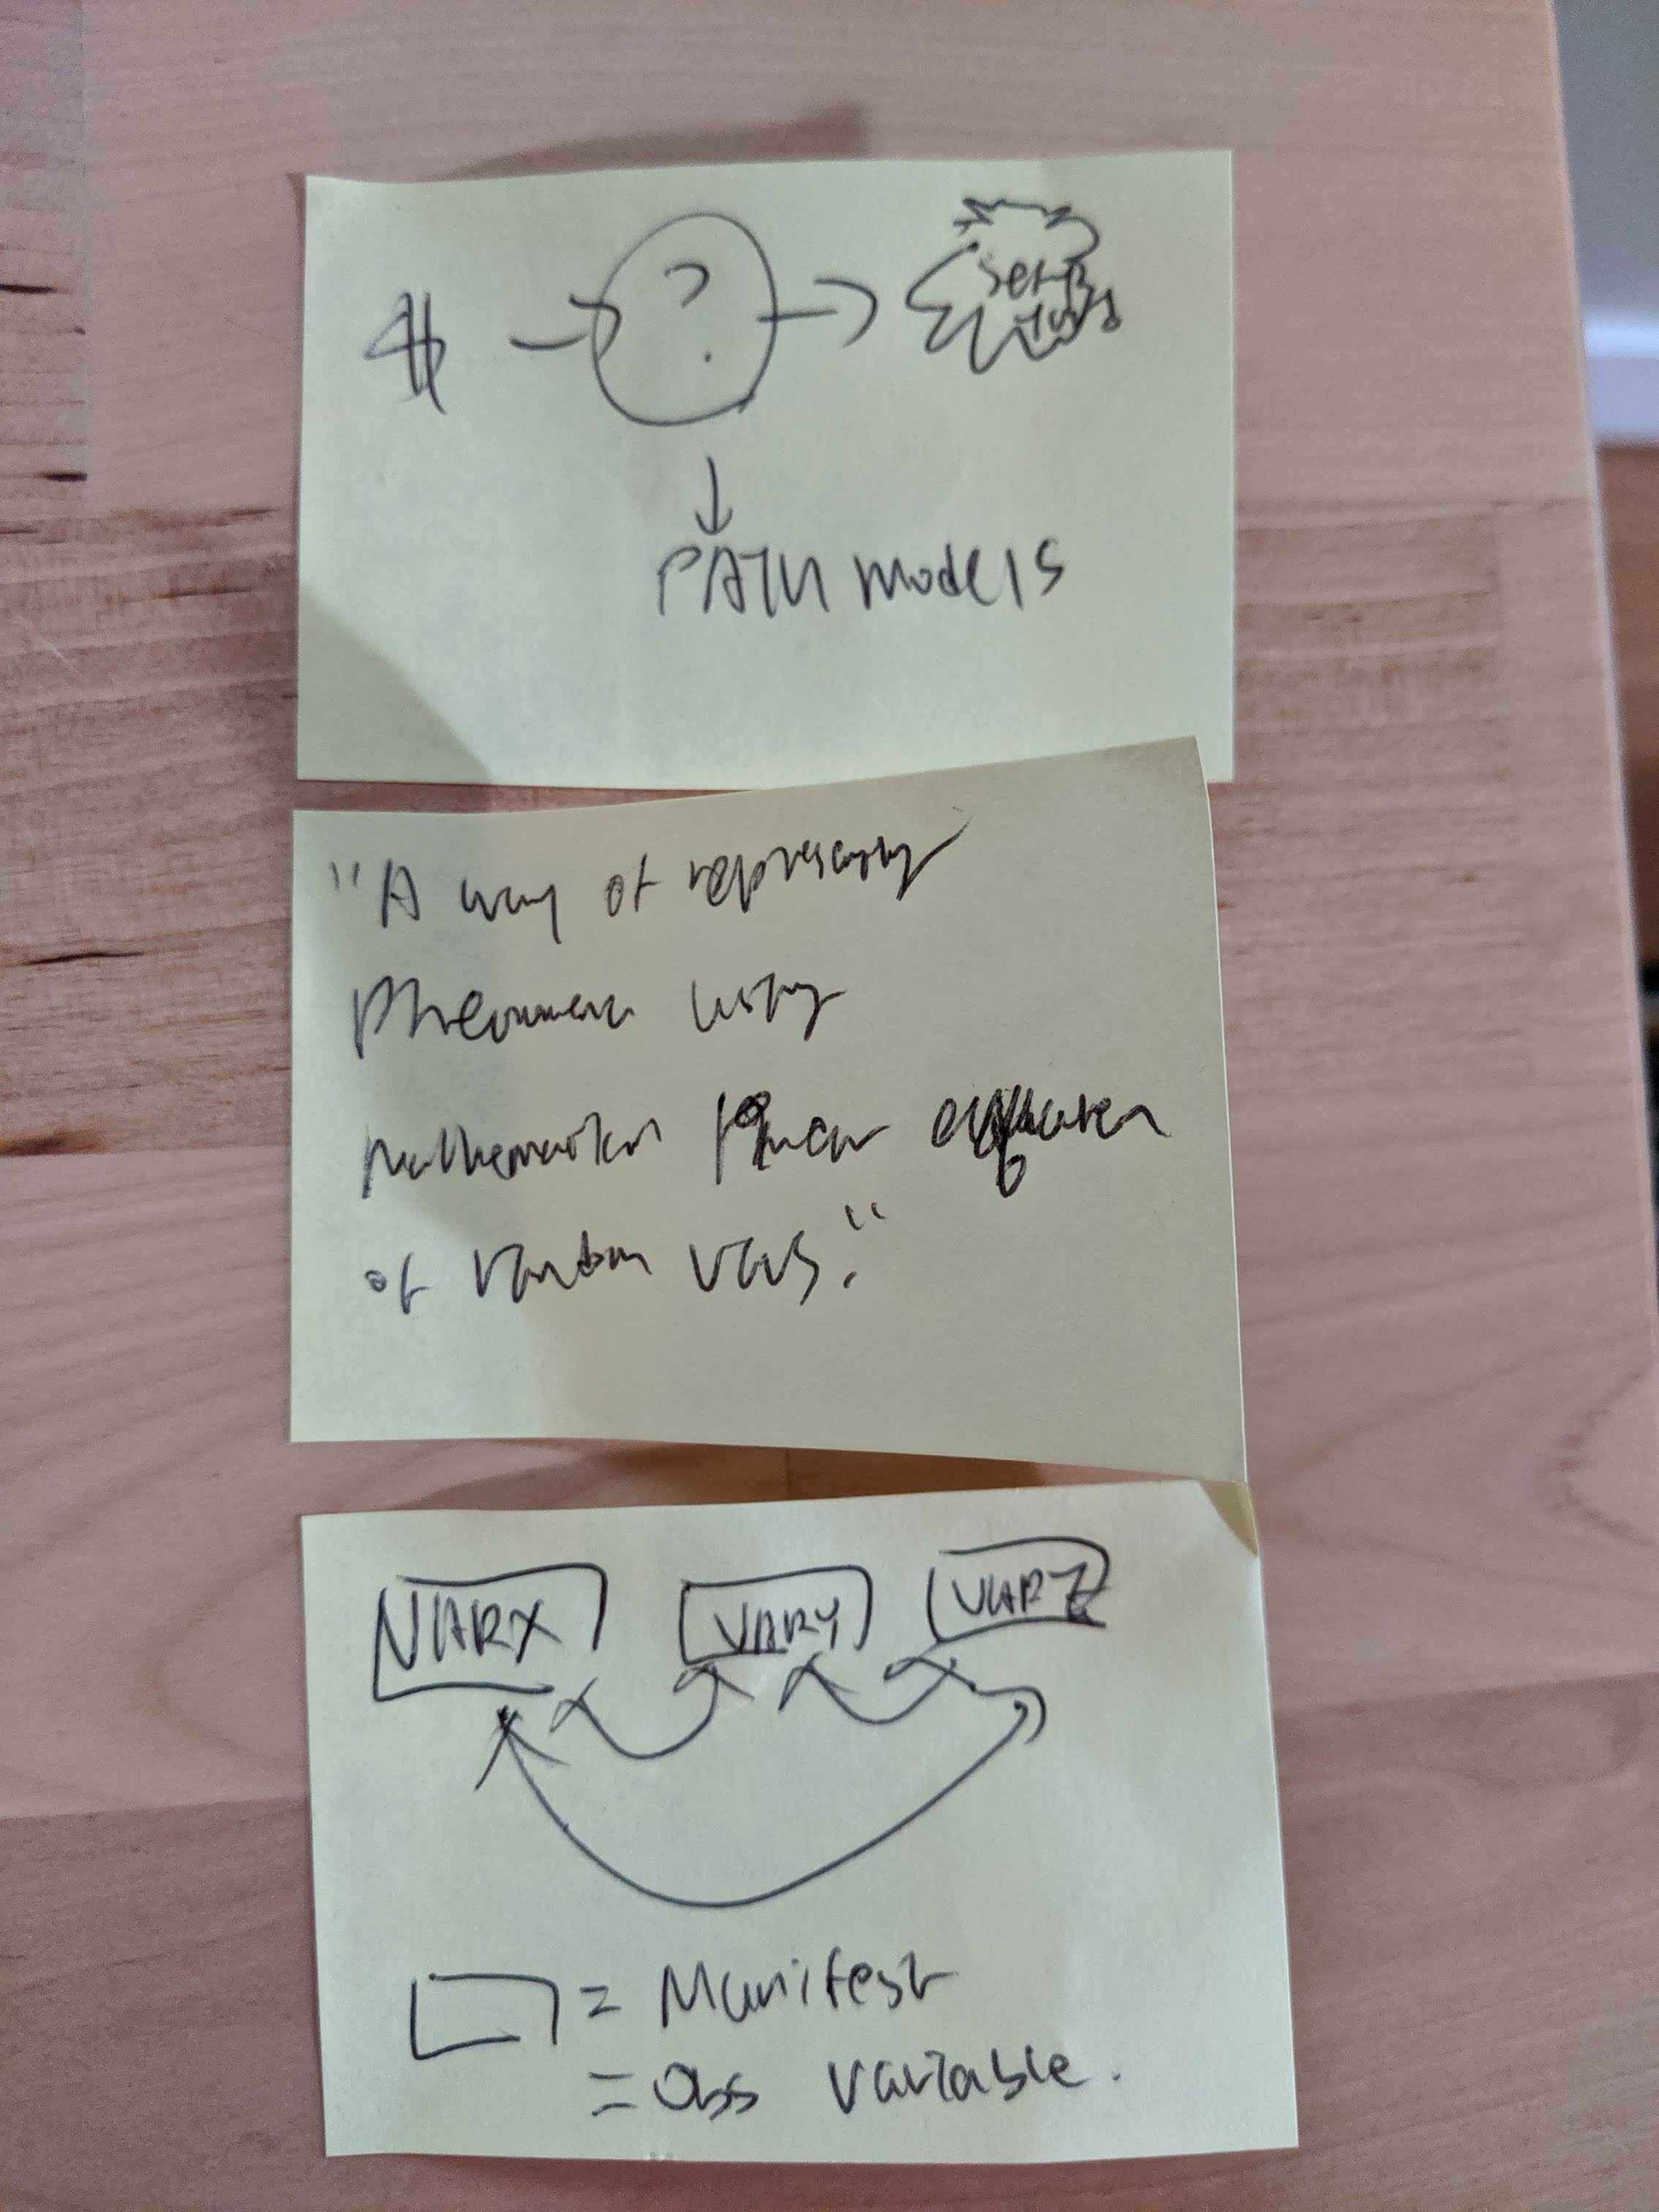 $ ?
PATH models
"A way of representing
Phenomena using
mathematical linear equation
of random vars."
VARX VARY VARZ
= Manifest
= Obs variable.